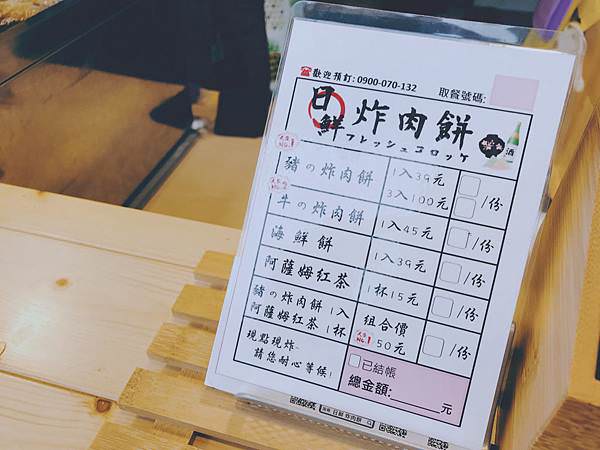 歡迎預訂:0900-070-132
取餐號碼:
日鮮 炸肉餅
フレッシュコロッケ
酒
人氣 No.1
豬の炸肉餅 1入39元 /份
3入100元
牛の炸肉餅 1入45元 /份
海鮮餅 1入39元 /份
阿薩姆紅茶 1杯15元 /份
豬の炸肉餅 1入 組合價 /份
阿薩姆紅茶 1杯 人氣 No.1 50元
現點現炸
請您耐心等候!
已結帳
總金額:________元
日鮮 炸肉餅